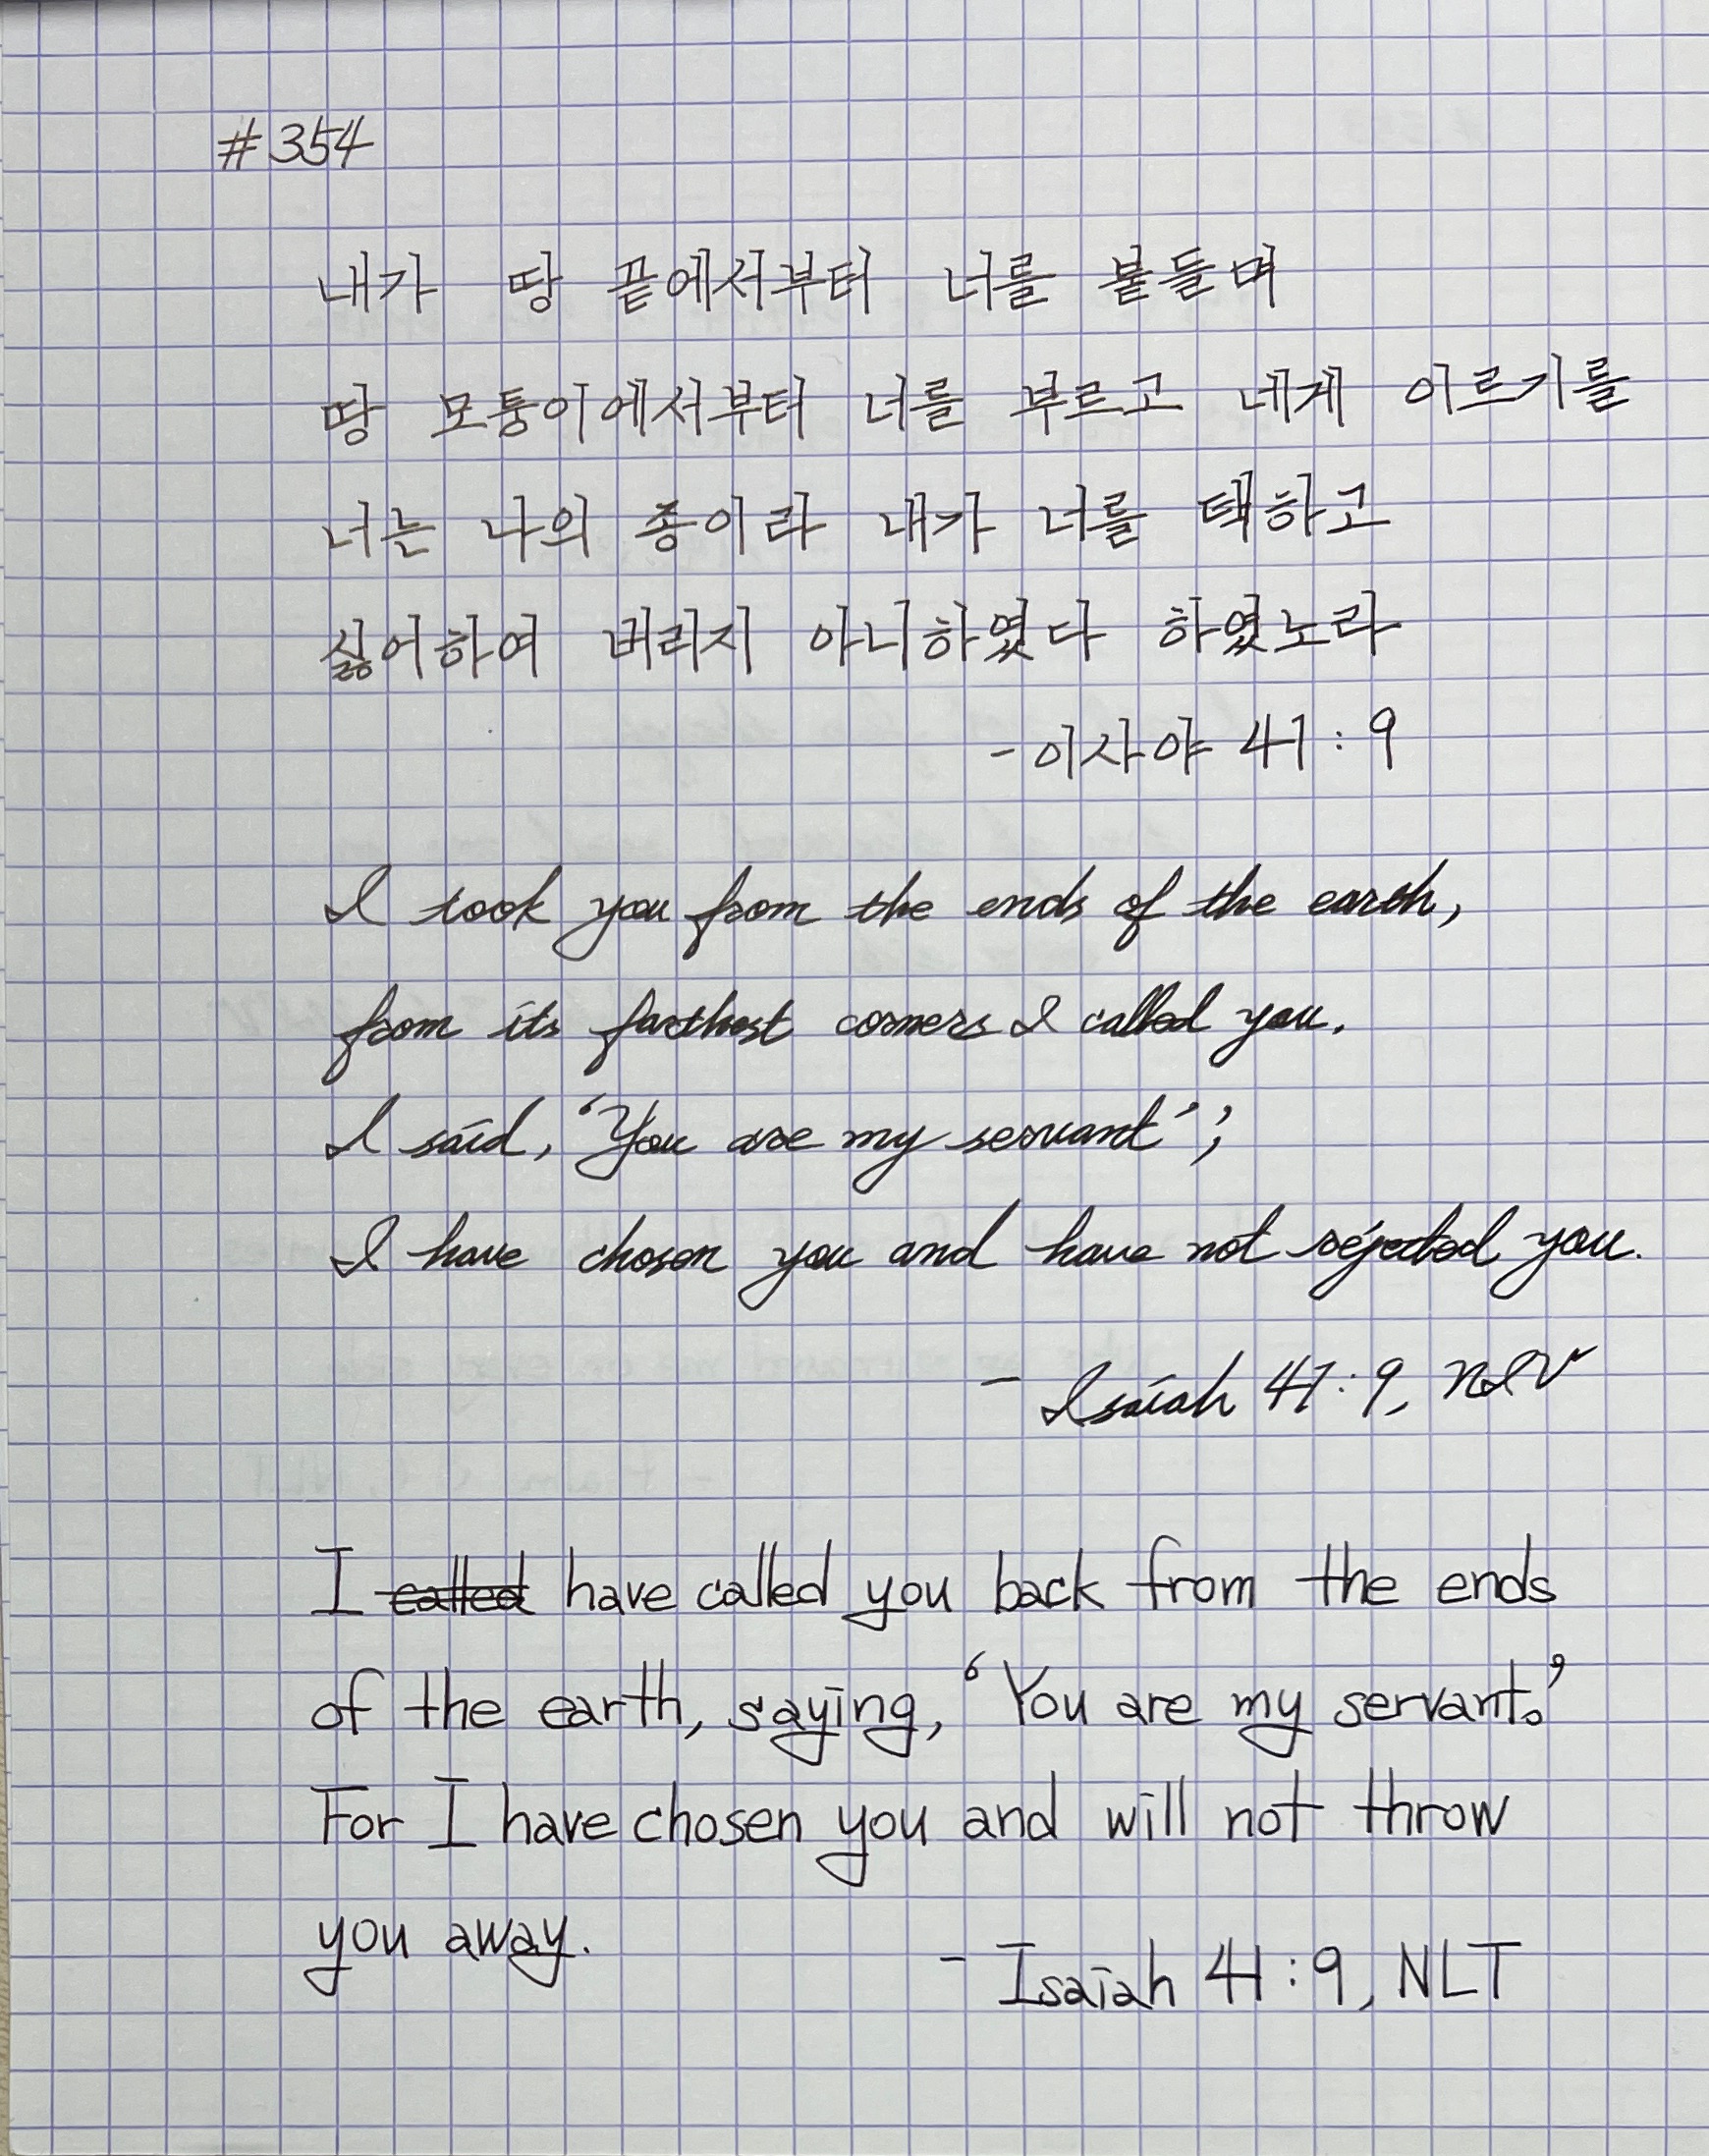 #354
내가 땅 끝에서부터 너를 붙들며
땅 모퉁이에서부터 너를 부르고 네게 이르기를
너는 나의 종이라 내가 너를 택하고
싫어하여 버리지 아니하였다 하였노라
- 이사야 41:9
I took you from the ends of the earth,
from its farthest corners I called you.
I said, 'You are my servant';
I have chosen you and have not rejected you.
- Isaiah 41:9, NIV
I called have called you back from the ends
of the earth, saying, 'You are my servant.'
For I have chosen you and will not throw
you away.
- Isaiah 41:9, NLT